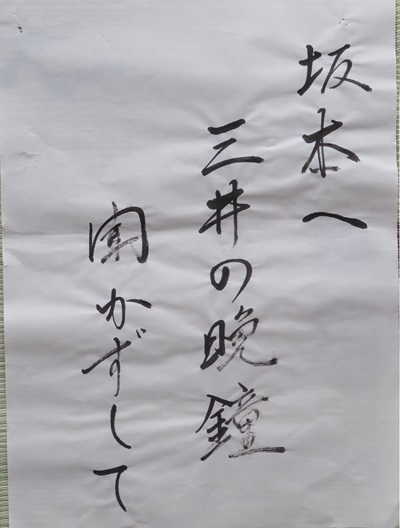 坂本へ
三井の晩鐘
聞かずして